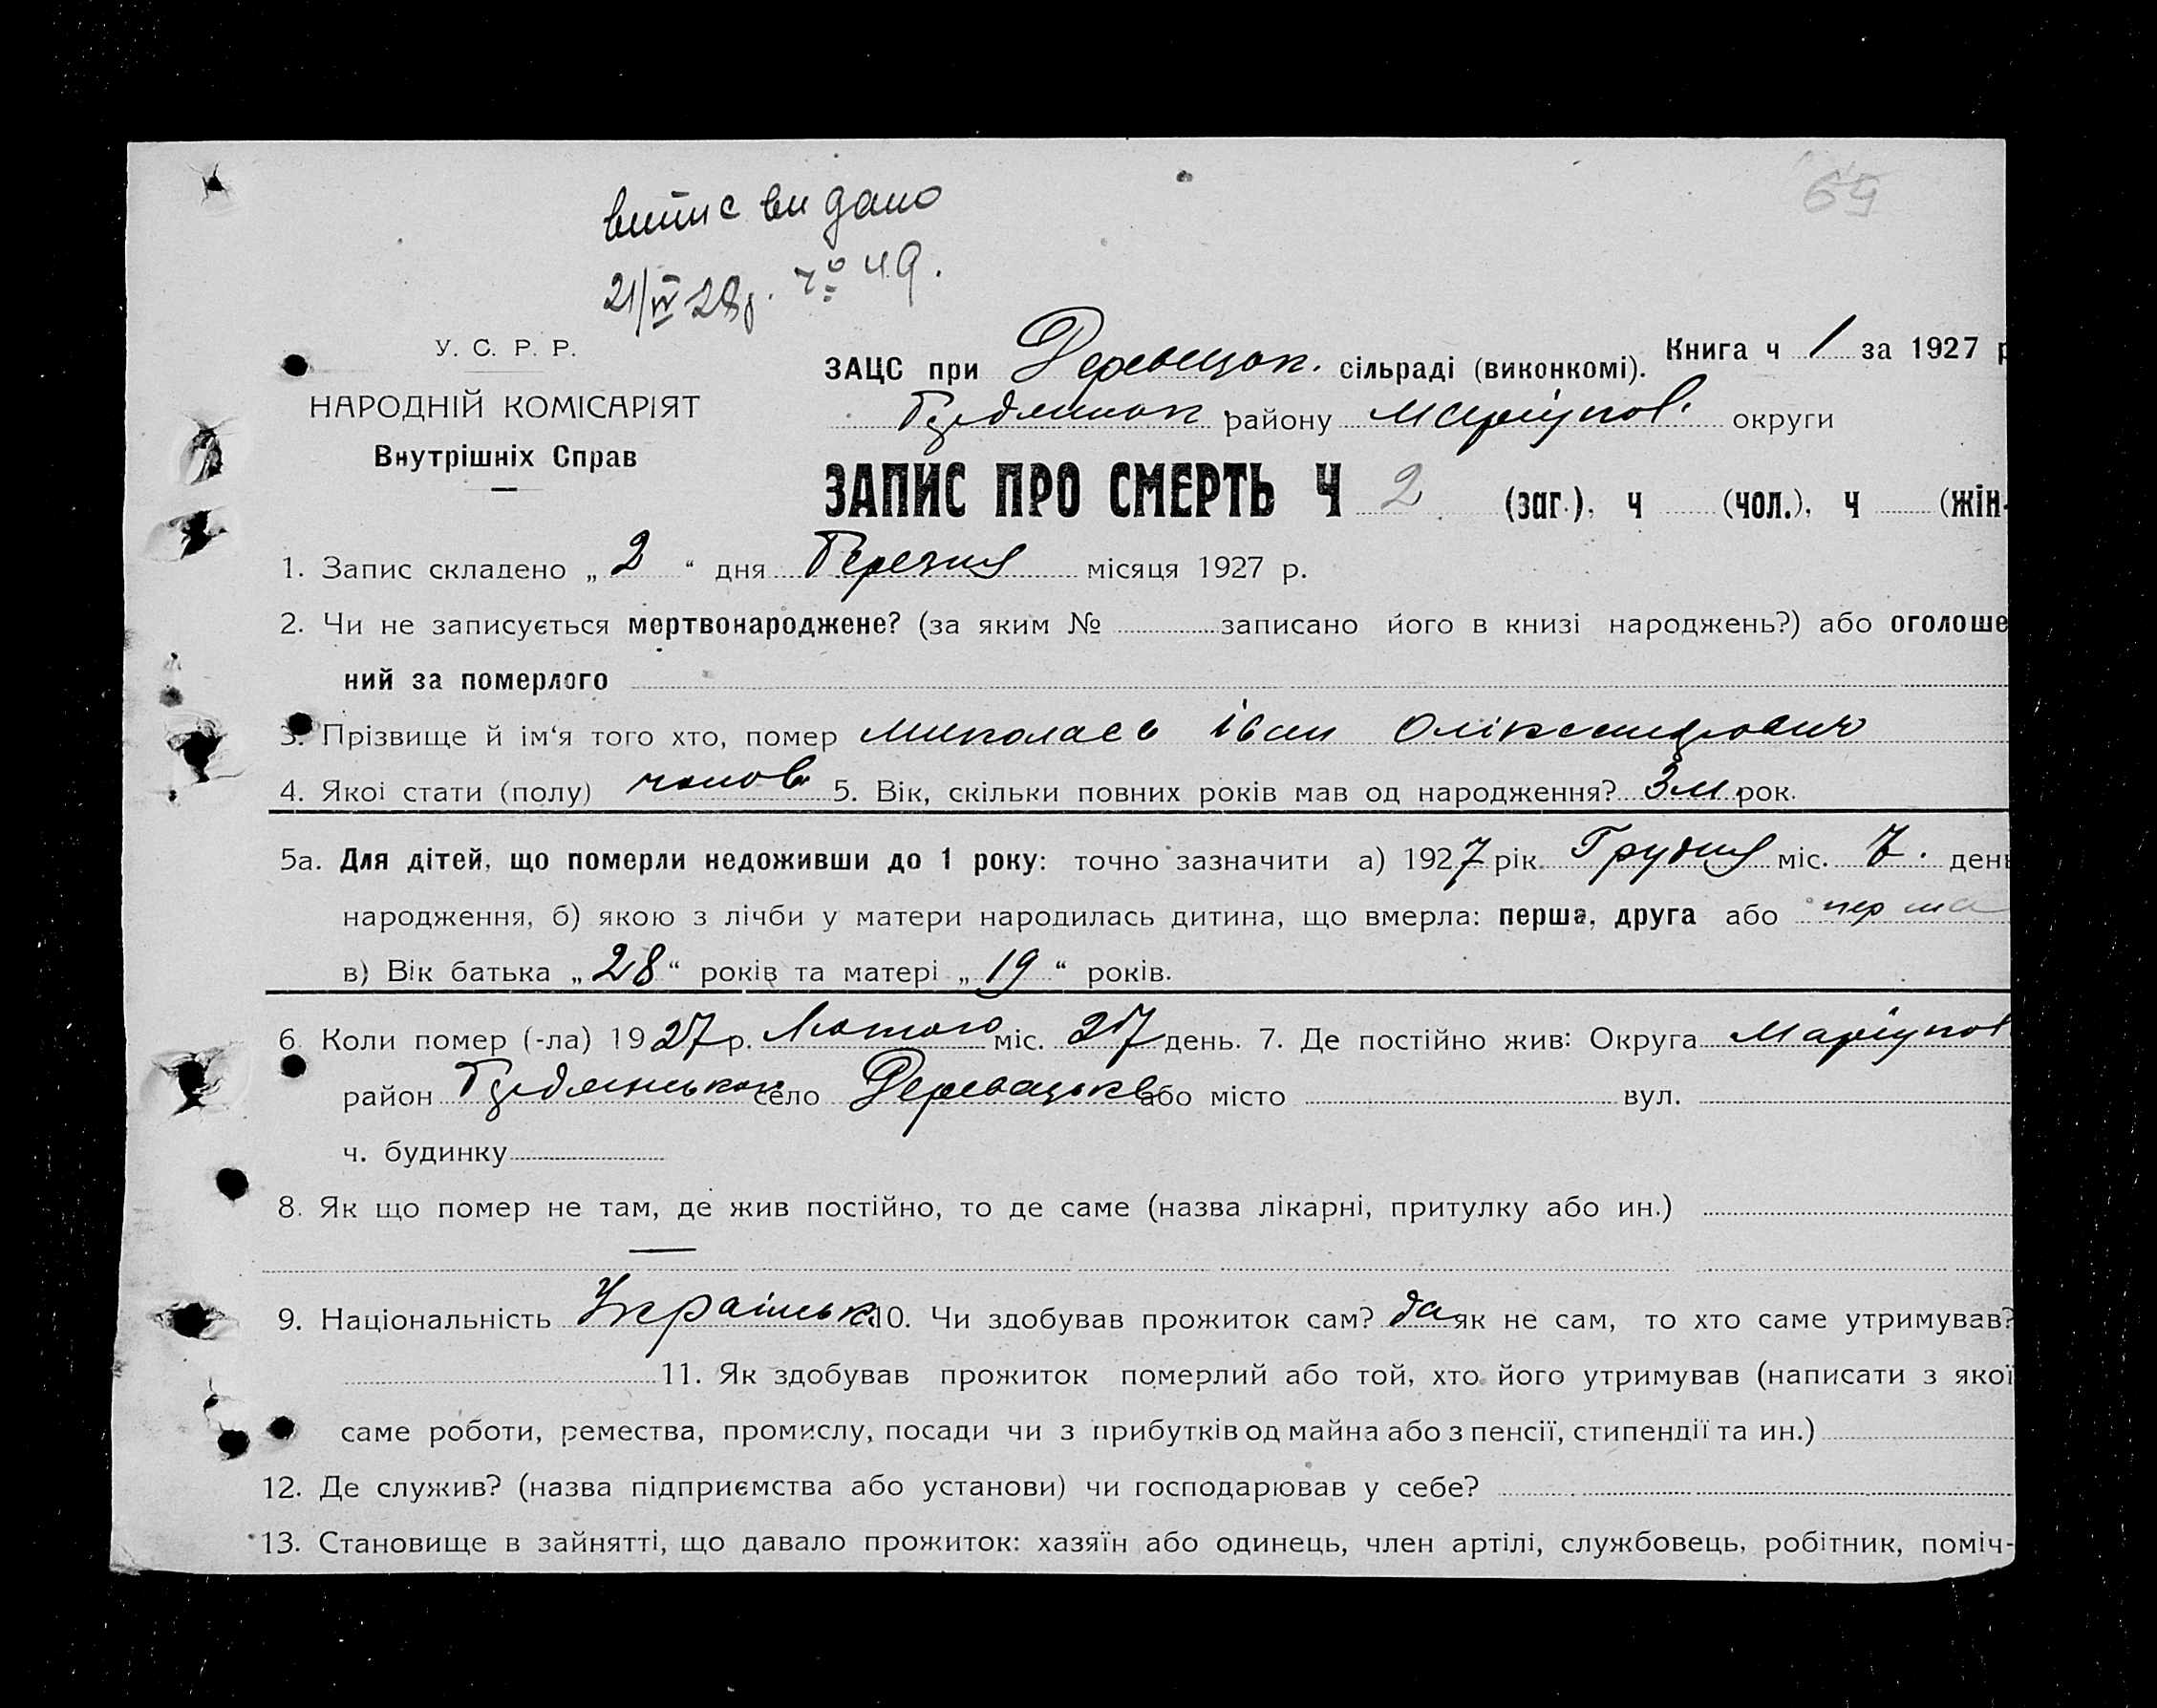 65
витис ви дано
21/IV 28р. № 49.
У. С. Р. Р.
НАРОДНІЙ КОМІСАРІЯТ
Внутрішніх Справ
Книга ч 1 за 1927 р
ЗАЦС при Деревецок. сільраді (виконкомі).
району Маріупол. округи
ЗАПИС ПРО СМЕРТЬ Ч 2 (заг.), ч (чол.), ч (жін.
1. Запис складено „ 2 “ дня Березня місяця 1927 р.
2. Чи не записується мертвонароджене? (за яким № записано його в книзі народжень?) або оголоше
ний за померлого
3. Прізвище й ім‘я того хто, помер Миколаєв Іван Оліксандрович
4. Якоі стати (полу) чолов. 5. Вік, скільки повних років мав од народження? 3 м рок.
5а. Для дітей, що померли недоживши до 1 року: точно зазначити а) 1927 рік. Грудня міс. 7. день
народження, б) якою з лічби у матери народилась дитина, що вмерла: перша, друга або перша
в) Вік батька „ 28 “ років та матері „ 19 “ років.
6. Коли помер (-ла) 1927 р. Лютого міс. 27 день. 7. Де постійно жив: Округа Маріупол
район село Деревецьке або місто вул.
ч. будинку
8. Як що помер не там, де жив постійно, то де саме (назва лікарні, притулку або ин.)
—
9. Національність Українськ. 10. Чи здобував прожиток сам? да як не сам, то хто саме утримував?
11. Як здобував прожиток померлий або той, хто його утримував (написати з якої
саме роботи, ремества, промислу, посади чи з прибутків од майна або з пенсії, стипендії та ин.)
12. Де служив? (назва підприємства або установи) чи господарював у себе?
13. Становище в зайнятті, що давало прожиток: хазяїн або одинець, член артілі, службовець, робітник, поміч-